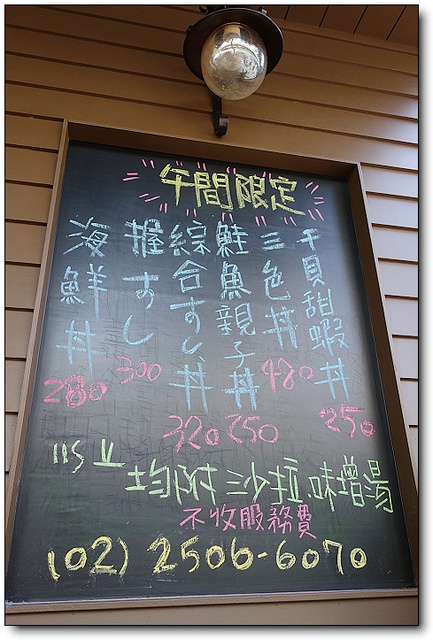 午間限定
干貝甜蝦丼 250
三色丼 480
鮭魚親子丼 250
綜合すし丼 320
握すし 300
海鮮丼 280
以上均附沙拉.味增湯
不收服務費
(02) 2506-6070